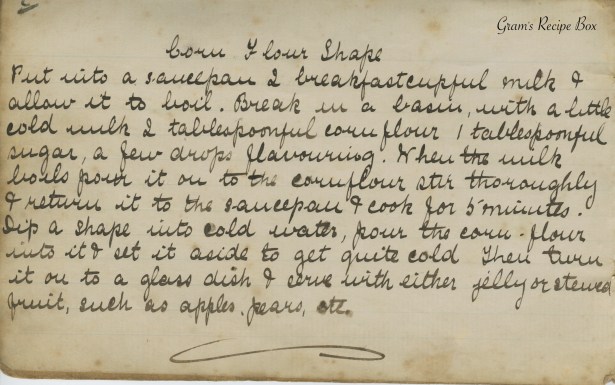 Gram's Recipe Box
Corn Flour Shape
Put into a saucepan 2 breakfastcupful milk &
allow it to boil. Break in a basin, with a little
cold milk 2 tablespoonful cornflour 1 tablespoonful
sugar, a few drops flavouring. When the milk
boils pour it on to the cornflour stir thoroughly
& return it to the saucepan & cook for 5 minutes.
Dip a shape into cold water, pour the corn-flour
into it & set it aside to get quite cold Then turn
it on to a glass dish & serve with either jelly or stewed
fruit, such as apples. pears, etc.